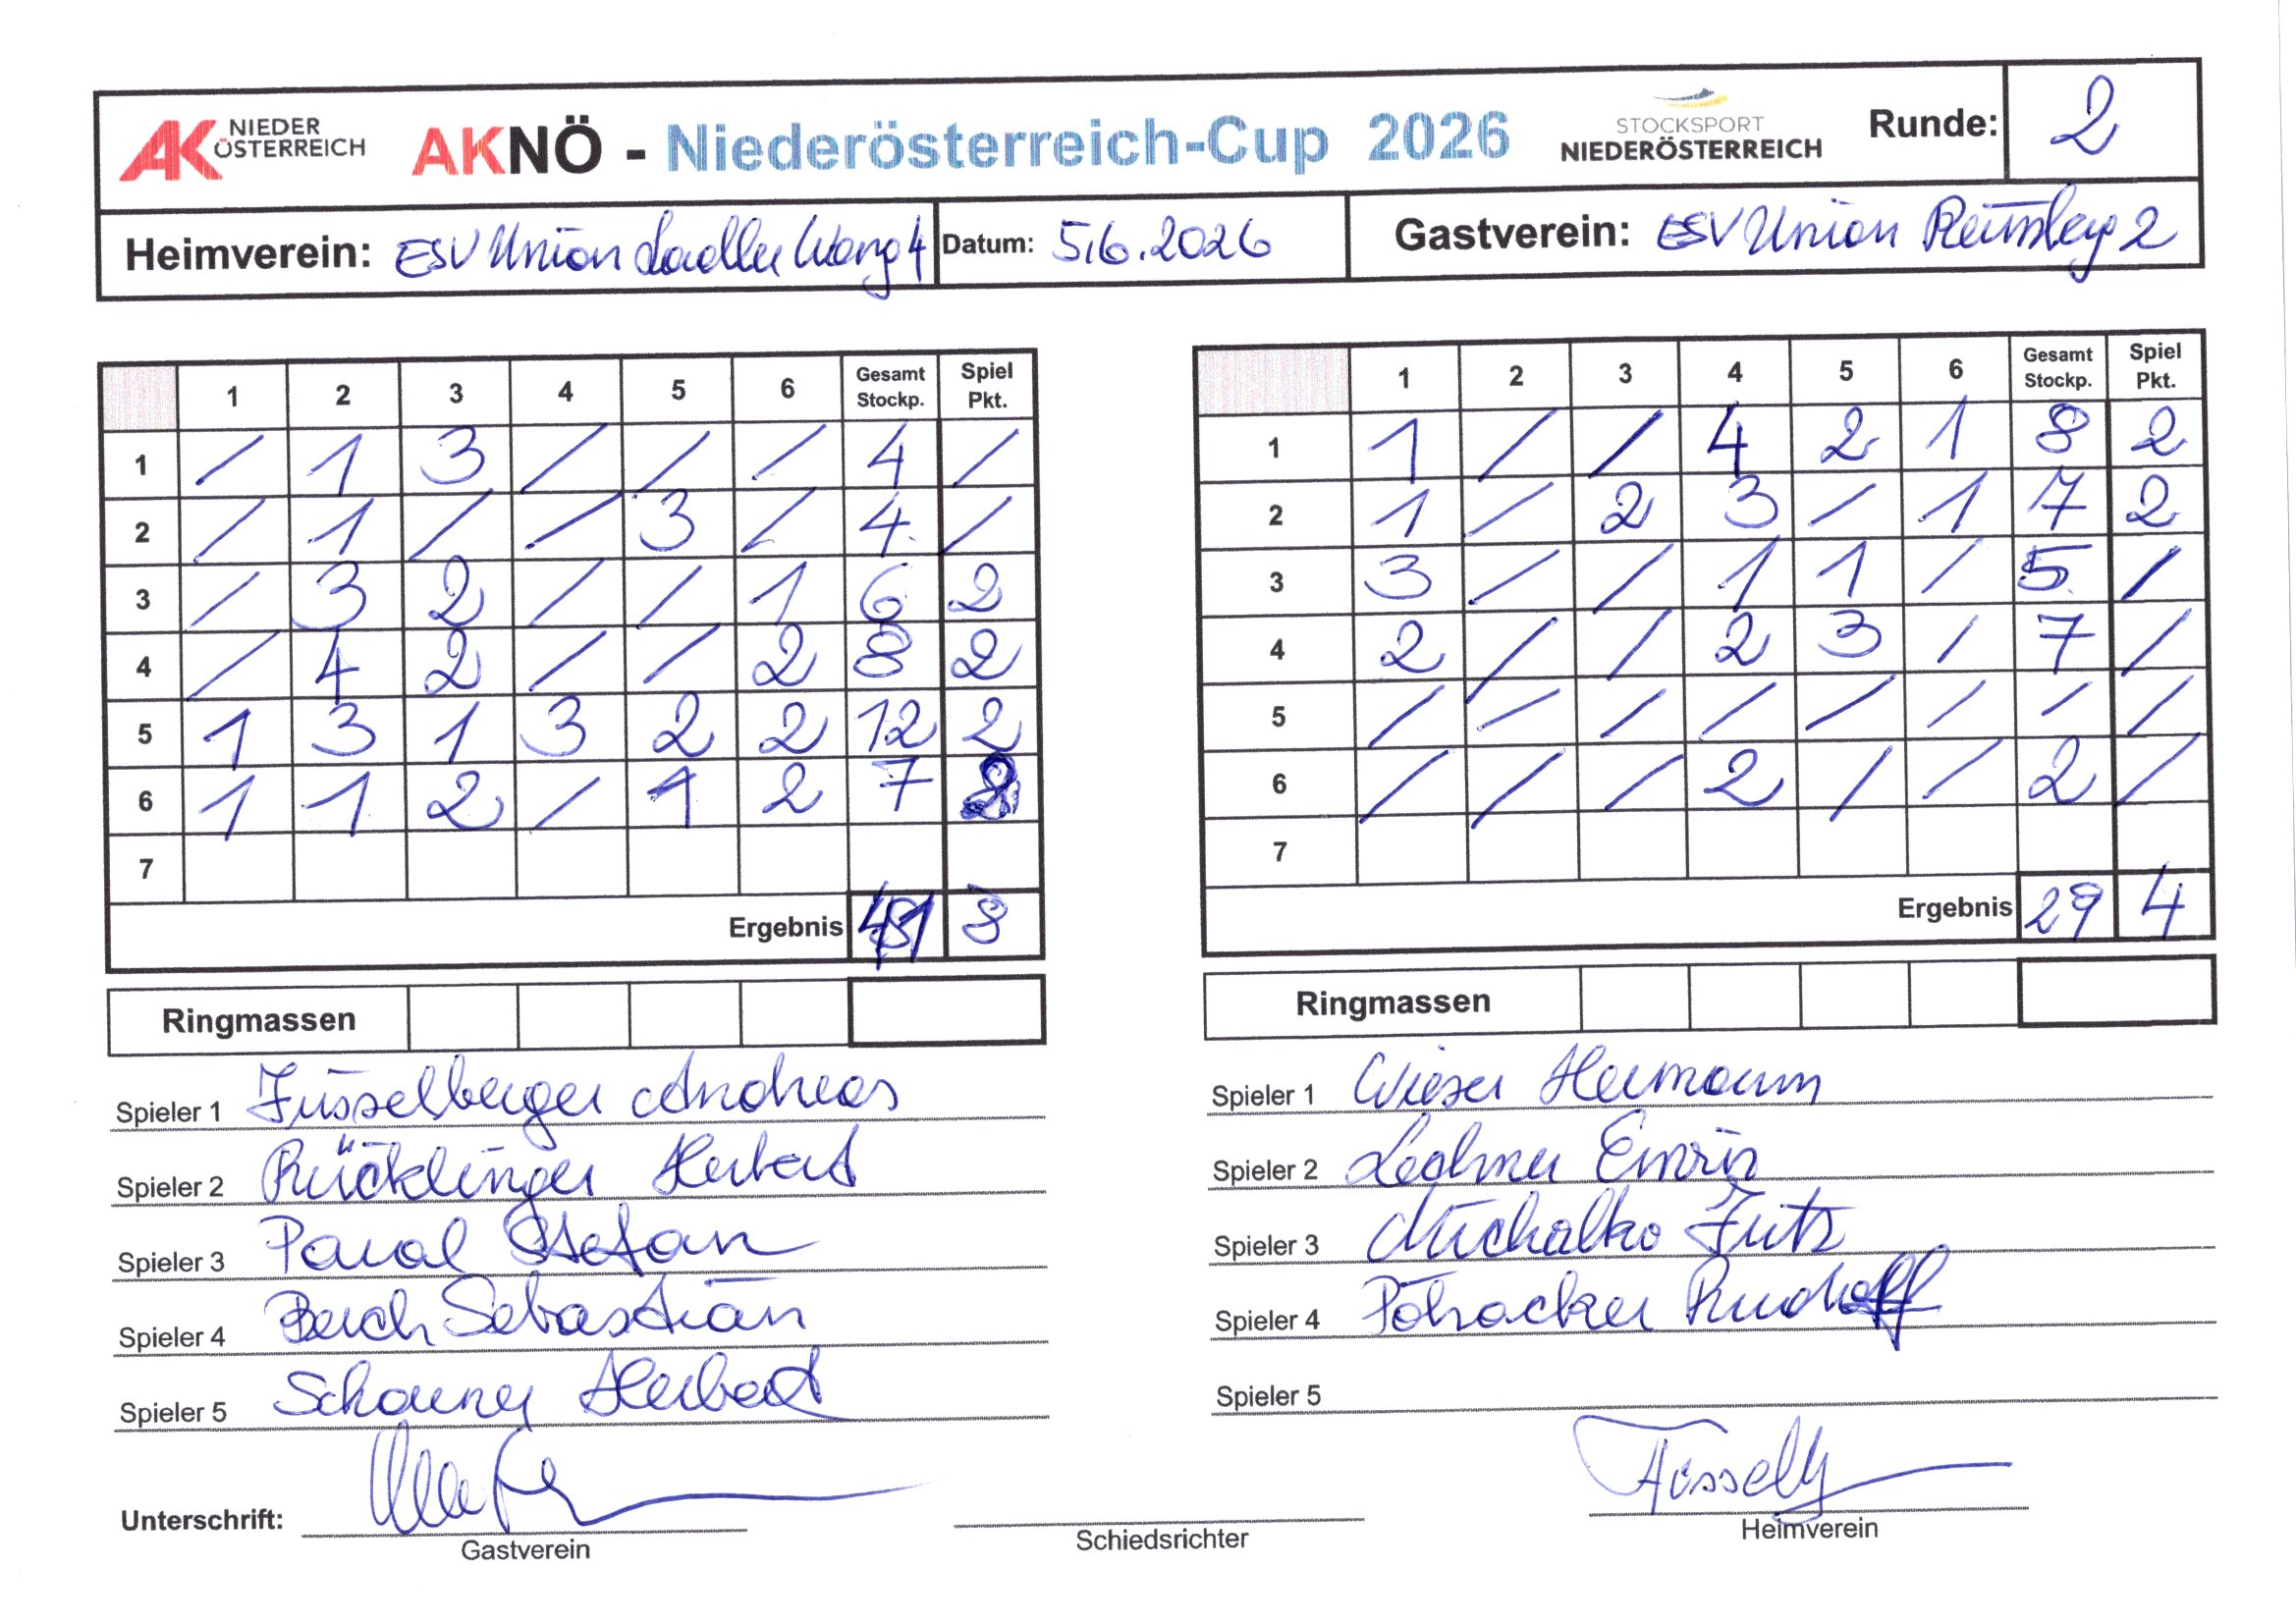 AK NIEDER ÖSTERREICH AKNÖ - Niederösterreich-Cup 2026 STOCKSPORT NIEDERÖSTERREICH Runde: 2
Heimverein: ESV Union Wang 4 Datum: 5.6.2026 Gastverein: ESV Union 2
1 2 3 4 5 6 Gesamt Stockp. Spiel Pkt.
1 / 1 3 / / / 4 /
2 / 1 / / 3 / 4 /
3 / 3 2 / / 1 6 2
4 / 4 2 / / 2 8 2
5 1 3 1 3 2 2 12 2
6 1 1 2 / 1 2 7 2
7
Ergebnis 41 8
Ringmassen
Spieler 1 Füsselberger Andreas
Spieler 2 Rücklinger Herbert
Spieler 3 Stefan
Spieler 4 Sebastian
Spieler 5 Herbert
1 2 3 4 5 6 Gesamt Stockp. Spiel Pkt.
1 1 / / 4 2 1 8 2
2 1 / 2 3 / 1 7 2
3 3 / / 1 1 / 5 /
4 2 / / 2 3 / 7 /
5 / / / / / / / /
6 / / / 2 / / 2 /
7
Ergebnis 29 4
Ringmassen
Spieler 1 Wieser Hermann
Spieler 2 Lechner Erwin
Spieler 3 Michalko Fritz
Spieler 4 Rudolf
Spieler 5
Unterschrift:
Gastverein Schiedsrichter Heimverein